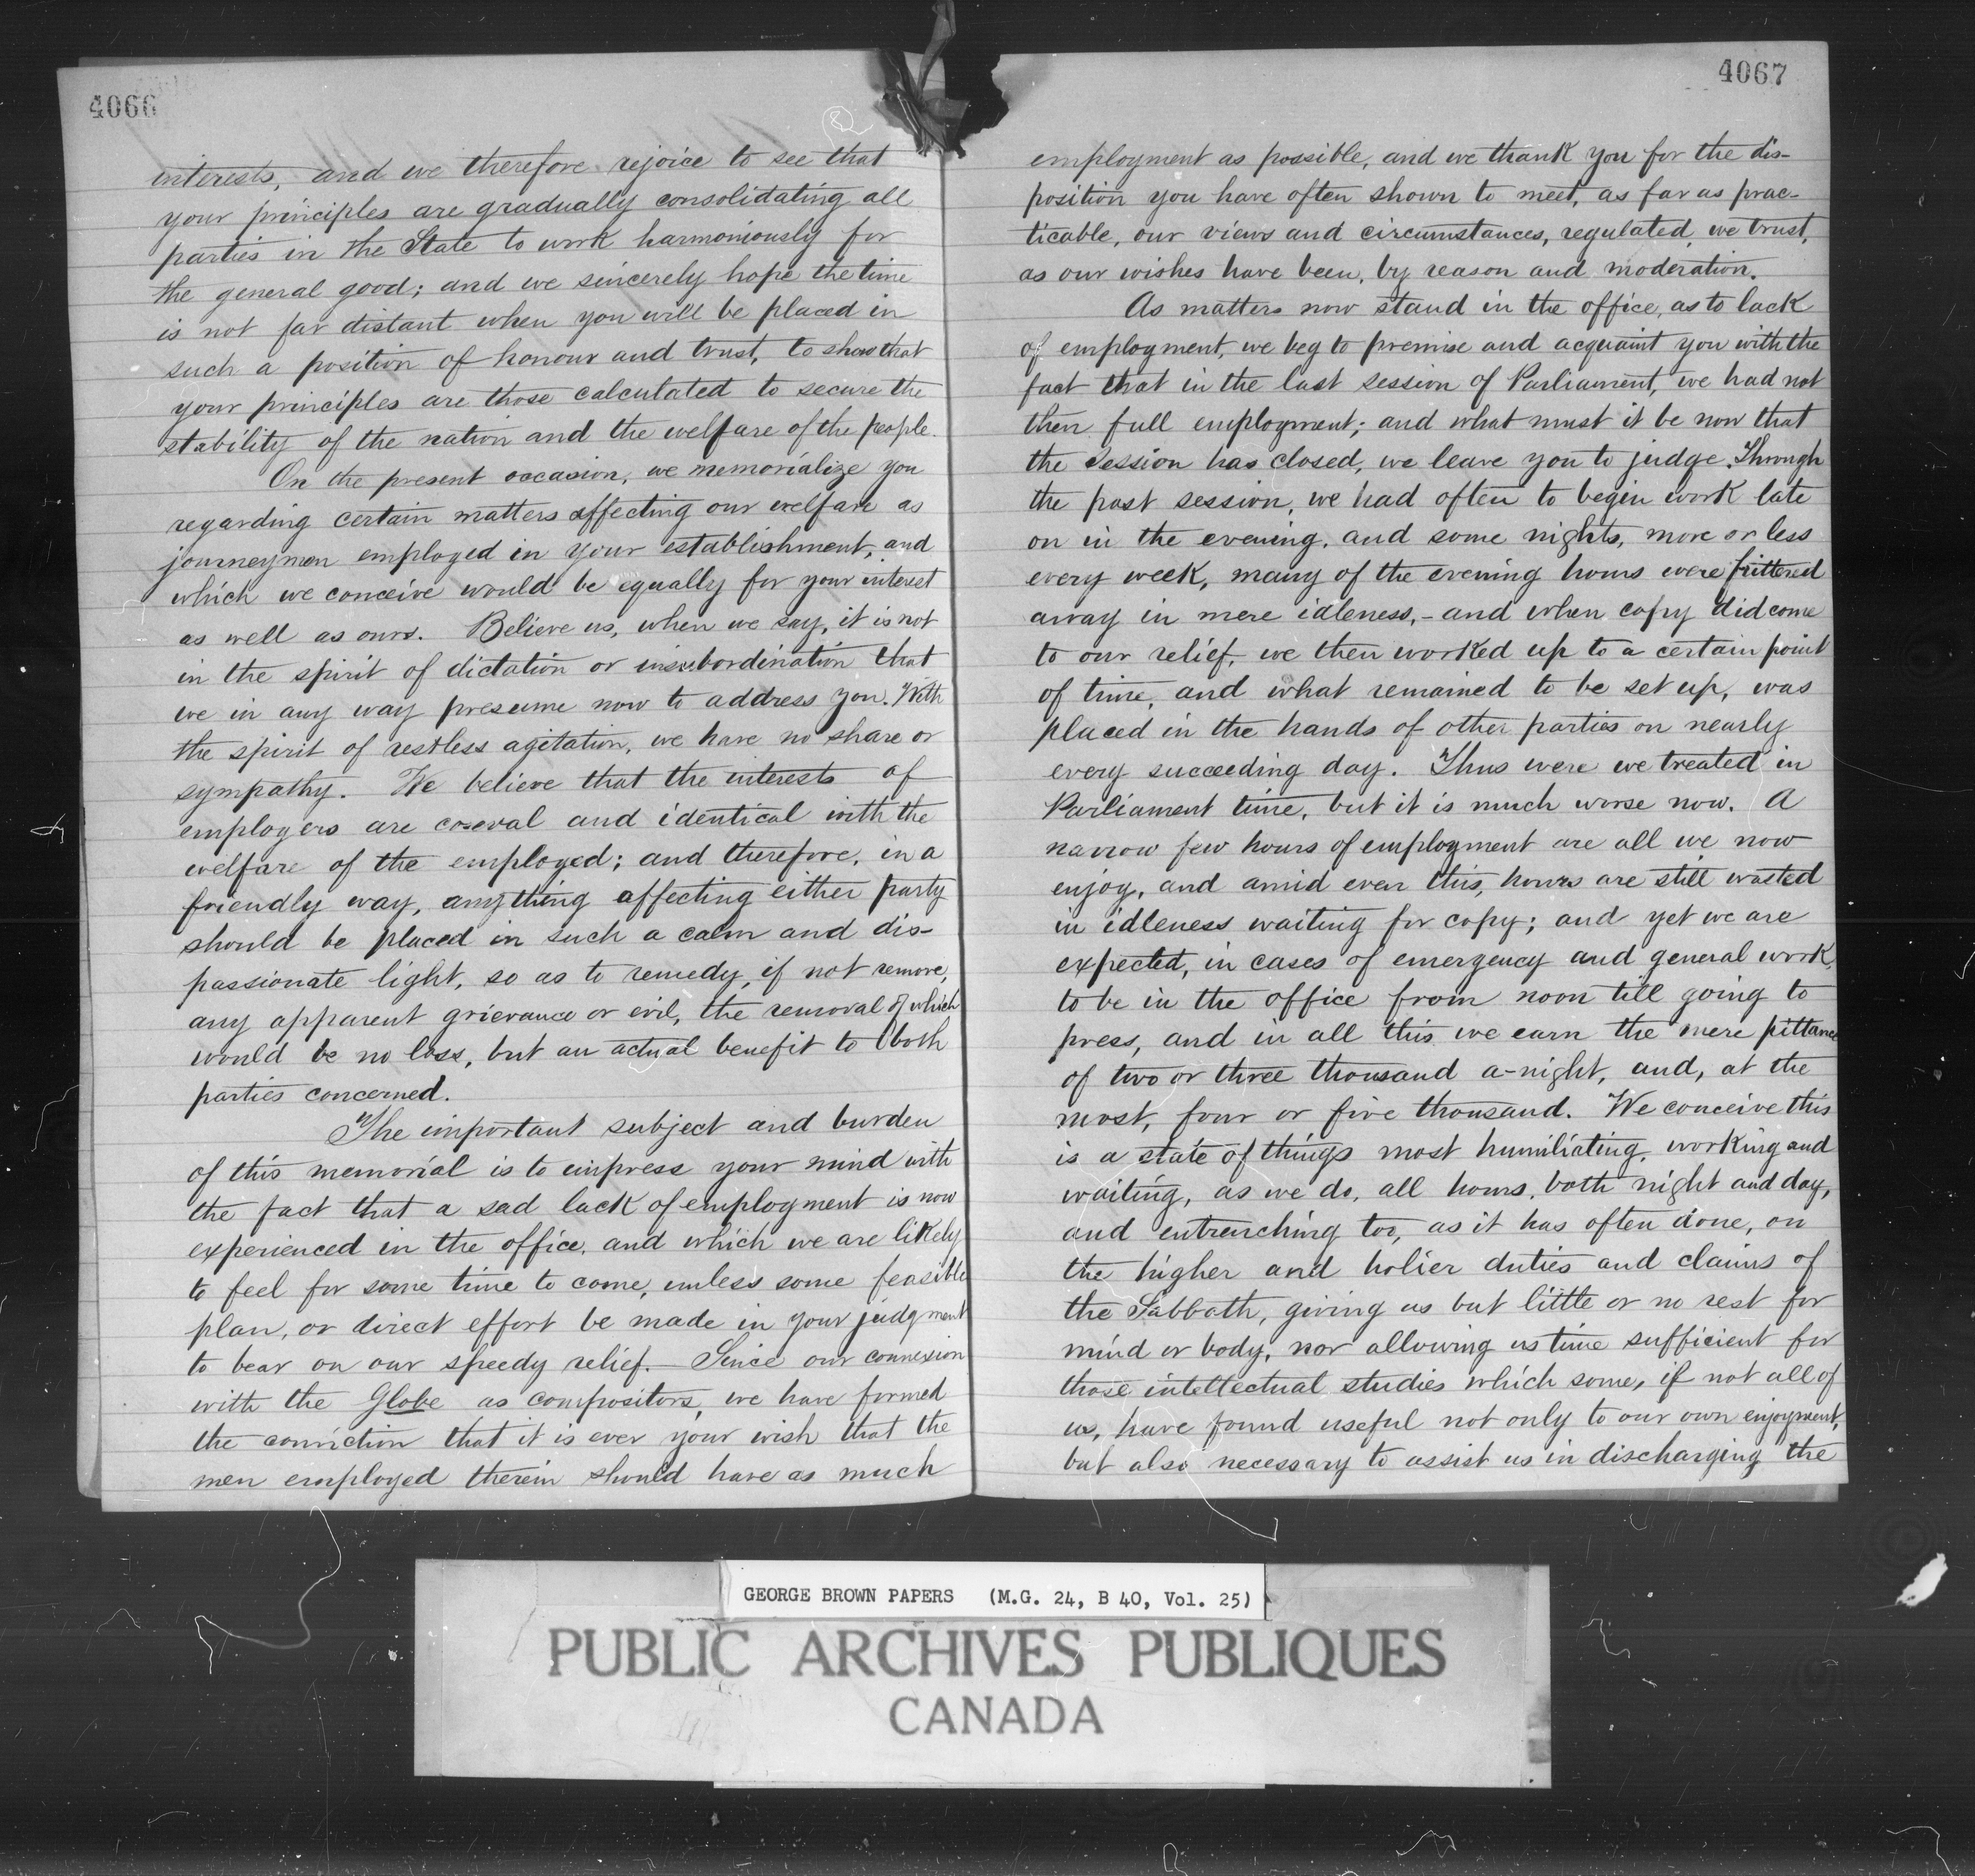 4066
interests, and we therefore rejoice to see that
your principles are gradually consolidating all
parties in the State to work harmoniously for
the general good; and we sincerely hope the time
is not far distant when you will be placed in
such a position of honour and trust, to show that
your principles are those calculated to secure the
stability of the nation and the welfare of the people.
On the present occasion, we memorialize you
regarding certain matters affecting our welfare as
journeymen employed in your establishment, and
which we conceive would be equally for your interest
as well as ours. Believe us, when we say, it is not
in the spirit of dictation or insubordination that
we in any way presume now to address you. With
the spirit of restless agitation, we have no share or
sympathy. We believe that the interests of
employers are co-eval and identical with the
welfare of the employed; and therefore, in a
friendly way, anything affecting either party
should be placed in such a calm and dis-
passionate light, so as to remedy, if not remove,
any apparent grievance or evil, the removal of which
would be no loss, but an actual benefit to both
parties concerned.
The important subject and burden
of this memorial is to impress your mind with
the fact that a sad lack of employment is now
experienced in the office, and which we are likely
to feel for some time to come, unless some feasible
plan, or direct effort be made in your judgment
to bear on our speedy relief. Since our connexion
with the Globe as compositors, we have formed
the conviction that it is ever your wish that the
men employed therein should have as much
4067
employment as possible, and we thank you for the dis-
position you have often shown to meet, as far as prac-
ticable, our views and circumstances, regulated, we trust,
as our wishes have been, by reason and moderation.
As matters now stand in the office, as to lack
of employment, we beg to premise and acquaint you with the
fact that in the last session of Parliament, we had not
then full employment; and what must it be now that
the Session has closed, we leave you to judge. Through
the past session, we had often to begin work late
on in the evening, and some nights, more or less
every week, many of the evening hours were frittered
away in mere idleness,- and when copy did come
to our relief, we then worked up to a certain point
of time, and what remained to be set up, was
placed in the hands of other parties on nearly
every succeeding day. Thus were we treated in
Parliament time, but it is much worse now. A
narrow few hours of employment are all we now
enjoy, and amid even this, hours are still wasted
in idleness waiting for copy; and yet we are
expected, in cases of emergency and general work,
to be in the office from noon till going to
press, and in all this we earn the mere pittance
of two or three thousand a-night, and, at the
most, four or five thousand. We conceive this
is a state of things most humiliating, working and
waiting, as we do, all hours, both night and day,
and entrenching too, as it has often done, on
the higher and holier duties and claims of
the Sabbath, giving us but little or no rest for
mind or body, nor allowing us time sufficient for
those intellectual studies which some, if not all of
us, have found useful not only to our own enjoyment,
but also necessary to assist us in discharging the
GEORGE BROWN PAPERS (M.G. 24, B 40, Vol. 25)
PUBLIC ARCHIVES PUBLIQUES
CANADA